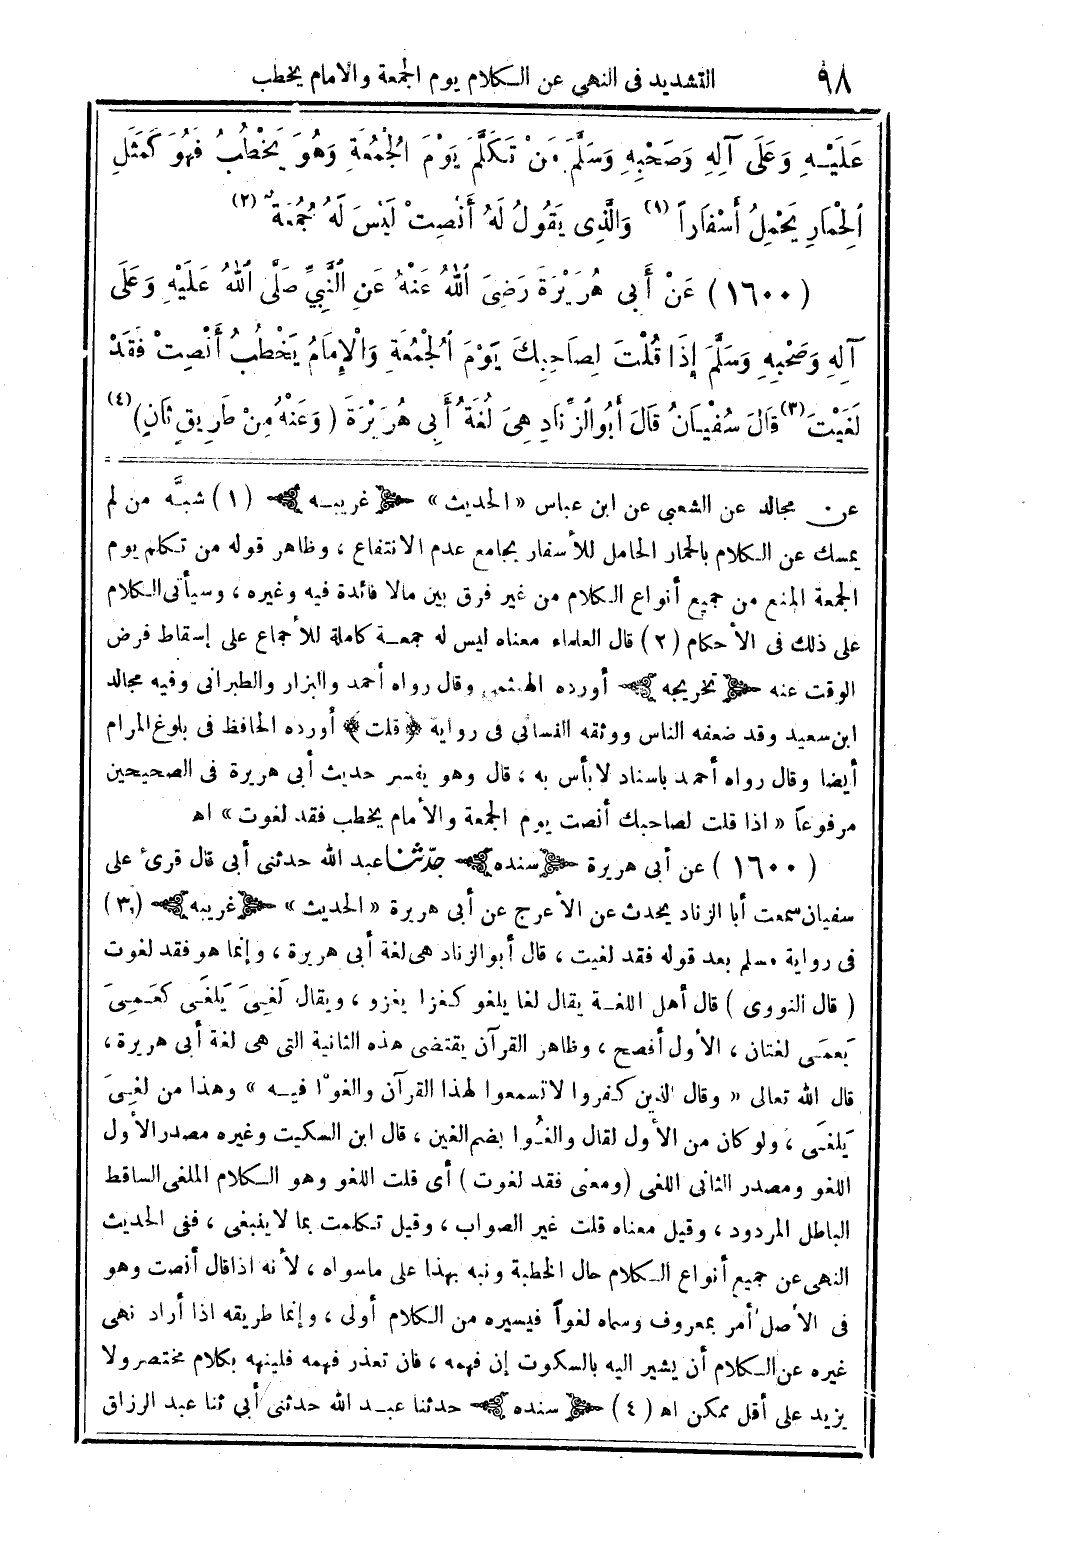 ٩٨ التشديد فى النهي عن الكلام يوم الجمعة والامام يخطب
عَلَيْهِ وَعَلَى آلِهِ وَصَحْبِهِ وَسَلَّمَ مَنْ تَكَلَّمَ يَوْمَ الْجُمُعَةِ وَهُوَ يَخْطُبُ فَهُوَ كَمَثَلِ
الْحِمَارِ يَحْمِلُ أَسْفَاراً (١) وَالَّذِى يَقُولُ لَهُ أَنْصِتْ لَيْسَ لَهُ جُمُعَةٌ (٢)
(١٦٠٠) عَنْ أَبِى هُرَيْرَةَ رَضِىَ اللهُ عَنْهُ عَنِ النَّبِيِّ صَلَّى اللهُ عَلَيْهِ وَعَلَى
آلِهِ وَصَحْبِهِ وَسَلَّمَ إِذَا قُلْتَ لِصَاحِبِكَ يَوْمَ الْجُمُعَةِ وَالْإِمَامُ يَخْطُبُ أَنْصِتْ فَقَدْ
لَغَيْتَ (٣) قَالَ سُفْيَانُ قَالَ أَبُو الزِّنَادِ هِىَ لُغَةُ أَبِى هُرَيْرَةَ (وَعَنْهُ مِنْ طَرِيقٍ ثَانٍ) (٤)
عن مجالد عن الشعبي عن ابن عباس « الحديث » ﴿ غريبه ﴾ (١) شبَّه من لم
يمسك عن الكلام بالحمار الحامل للأسفار بجامع عدم الانتفاع ، وظاهر قوله من تكلم يوم
الجمعة المنع من جميع أنواع الكلام من غير فرق بين مالا فائدة فيه وغيره ، وسيأتى الكلام
على ذلك فى الأحكام (٢) قال العلماء معناه ليس له جمعة كاملة للأجماع على إسقاط فرض
الوقت عنه ﴿ تخريجه ﴾ أورده الهيثمي وقال رواه أحمد والبزار والطبرانى وفيه مجالد
ابن سعيد وقد ضعفه الناس ووثقه النسائى فى رواية ﴿ قلت ﴾ أورده الحافظ فى بلوغ المرام
أيضا وقال رواه أحمد باسناد لابأس به ، قال وهو يفسر حديث أبى هريرة فى الصحيحين
مرفوعاً « اذا قلت لصاحبك أنصت يوم الجمعة والأمام يخطب فقد لغوت » اه
(١٦٠٠) عن أبى هريرة ﴿ سنده ﴾ حدّثنا عبد الله حدثنى أبى قال قرئ على
سفيان سمعت أبا الزناد يحدث عن الأعرج عن أبى هريرة « الحديث » ﴿ غريبه ﴾ (٣)
فى رواية مسلم بعد قوله فقد لغيت ، قال أبو الزناد هى لغة أبى هريرة ، وإنما هو فقد لغوت
( قال النووى ) قال أهل اللغة يقال لغا يلغو كغزا يغزو ، ويقال لَغِىَ يَلغَى كعَمِىَ
يَعمَى لغتان ، الأول أفصح ، وظاهر القرآن يقتضى هذه الثانية التى هى لغة أبى هريرة ،
قال الله تعالى « وقال الذين كفروا لا تسمعوا لهذا القرآن والغوْا فيه » وهذا من لغِىَ
يَلغَى ، ولو كان من الأول لقال والغُوا بضم الغين ، قال ابن السكيت وغيره مصدر الأول
اللغو ومصدر الثانى اللغى (ومعنى فقد لغوت) أى قلت اللغو وهو الكلام الملغى الساقط
الباطل المردود ، وقيل معناه قلت غير الصواب ، وقيل تكلمت بما لاينبغى ، ففى الحديث
النهى عن جميع أنواع الكلام حال الخطبة ونبه بهذا على ماسواه ، لأنه اذا قال أنصت وهو
فى الأصل أمر بمعروف وسماه لغواً فيسيره من الكلام أولى ، وإنما طريقه اذا أراد نهى
غيره عن الكلام أن يشير اليه بالسكوت إن فهمه ، فان تعذر فهمه فلينهه بكلام مختصر ولا
يزيد على أقل ممكن اه (٤) ﴿ سنده ﴾ حدثنا عبد الله حدثنى أبي ثنا عبد الرزاق